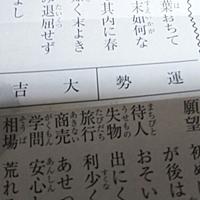 葉おちて
末如何な
其内に春
く末よき
み退屈せず
運勢
大吉
願望 初め
が後は
待人 おそい
失物 出にく
旅行 利少く
商売 あせ
学問 安心
相場 荒れ